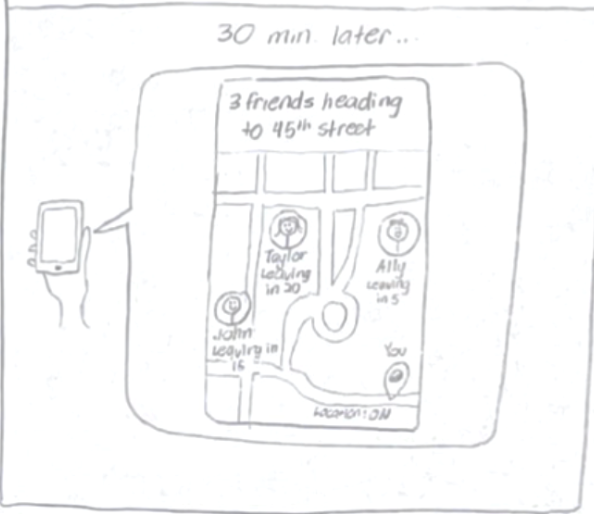 30 min. later..
3 friends heading
to 45th street
Taylor
Leaving
in 20
Ally
Leaving
in 5
John
Leaving in
15
You
Location: ON